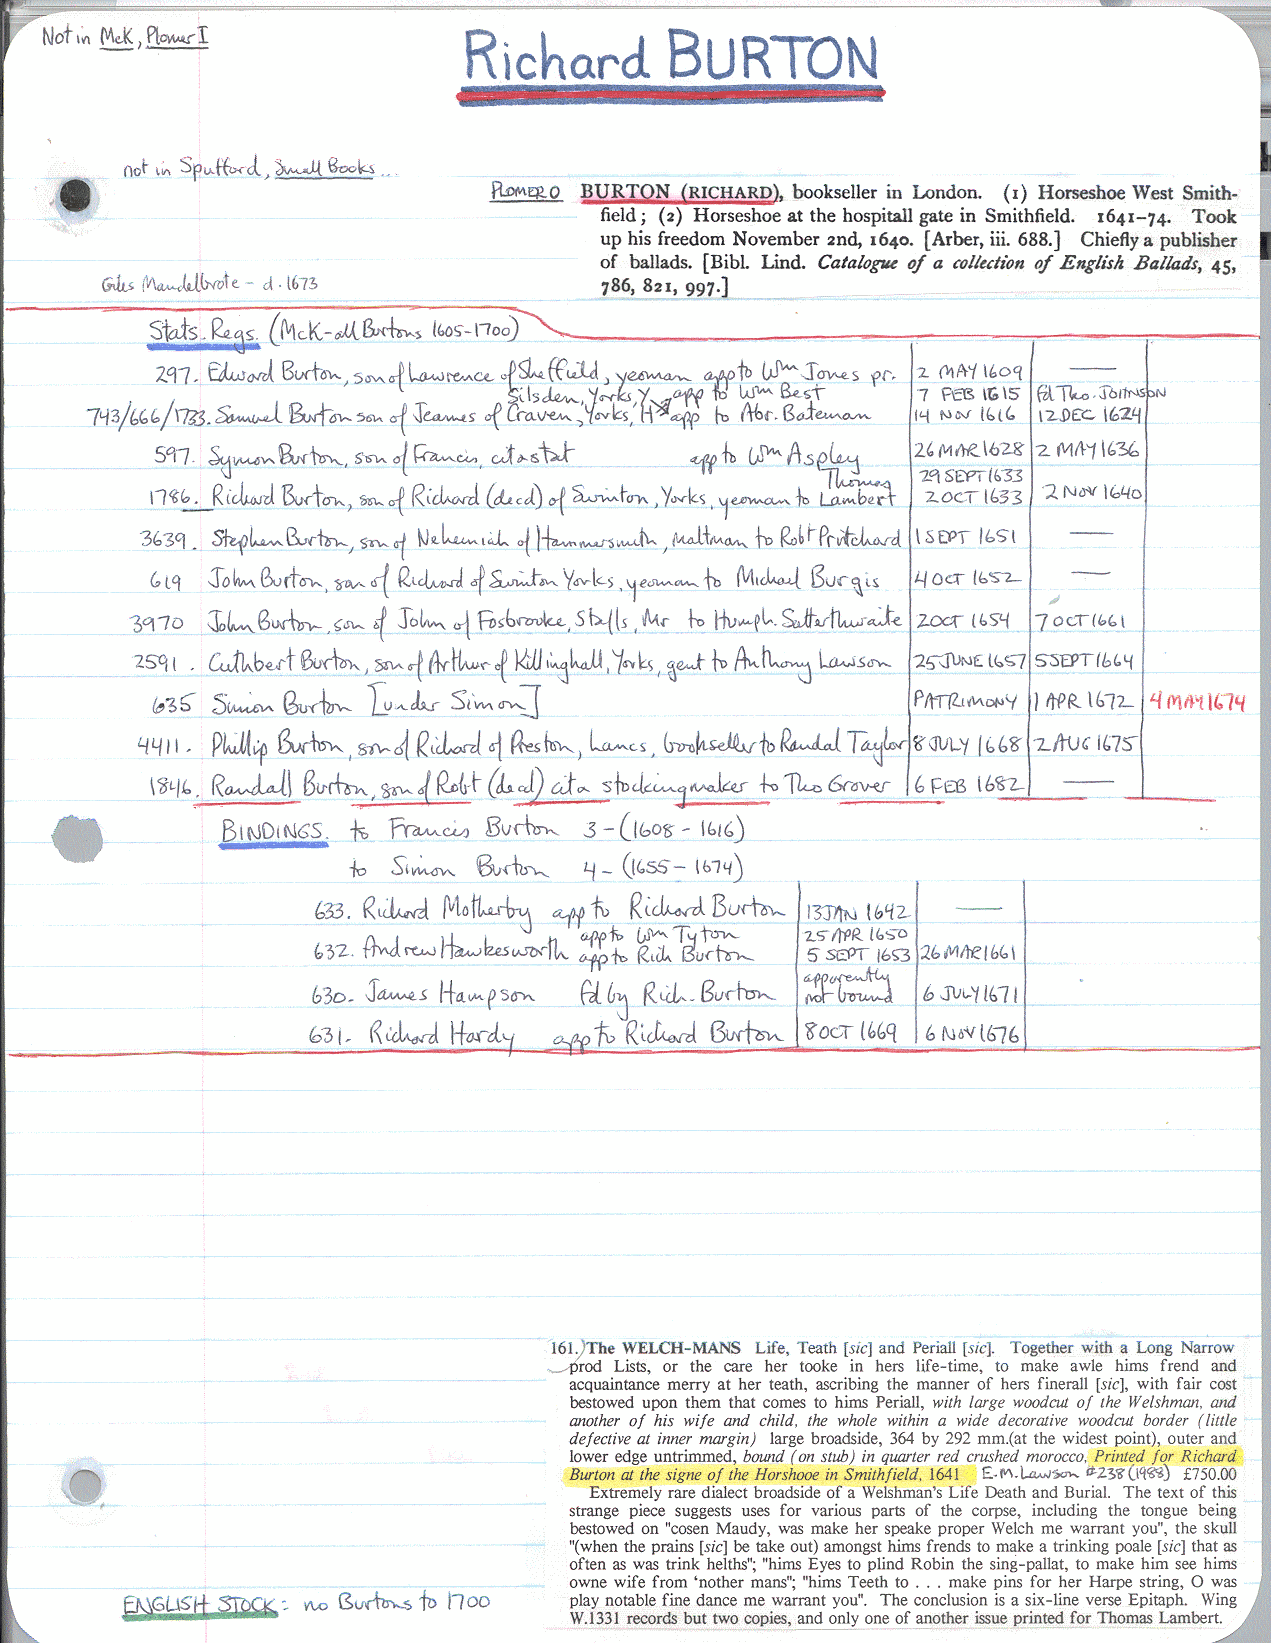 Not in McK, Plomer I
Richard BURTON
not in Spufford, Small Books...
PLOMER O BURTON (RICHARD), bookseller in London. (1) Horseshoe West Smith-
field; (2) Horseshoe at the hospitall gate in Smithfield. 1641–74. Took
up his freedom November 2nd, 1640. [Arber, iii. 688.] Chiefly a publisher
of ballads. [Bibl. Lind. Catalogue of a collection of English Ballads, 45,
786, 821, 997.]
Giles Mandelbrote - d. 1673
Stats. Regs. (McK - all Burtons 1605-1700)
297. Edward Burton, son of Lawrence of Sheffield, yeoman app to Wm Jones pr. 2 MAY 1609 —
Silsden, Yorks, Y app to Wm Best 7 FEB 1615 fd Tho. JOHNSON
743/666/1733. Samuel Burton son of Jeames of Craven, Yorks, H app to Abr. Bateman 14 NOV 1616 12 DEC 1624
597. Symon Burton, son of Francis, cit a stat app to Wm Aspley 26 MAR 1628 2 MAY 1636
Thomas 29 SEPT 1633
1786. Richard Burton, son of Richard (decd) of Swinton, Yorks, yeoman to Lambert 2 OCT 1633 2 NOV 1640
3639. Stephen Burton, son of Nehemiah of Hammersmith, Maltman to Robt Pritchard 1 SEPT 1651 —
619 John Burton, son of Richard of Swinton Yorks, yeoman to Michael Burgis 4 OCT 1652 —
3970 John Burton, son of John of Fosbrooke, Staffs, Mr to Humph. Satterthwaite 2 OCT 1654 7 OCT 1661
2591. Cuthbert Burton, son of Arthur of Killinghall, Yorks, gent to Anthony Lawson 25 JUNE 1657 5 SEPT 1664
635 Simon Burton [under Simon] PATRIMONY 1 APR 1672 4 MAY 1674
4411. Phillip Burton, son of Richard of Preston, Lancs, bookseller to Randal Taylor 8 JULY 1668 2 AUG 1675
1846. Randall Burton, son of Robt (decd) cit a stockingmaker to Tho Grover 6 FEB 1682 —
BINDINGS. to Francis Burton 3 - (1608 - 1616)
to Simon Burton 4 - (1655 - 1674)
633. Richard Motherby app to Richard Burton 13 JAN 1642 —
app to Wm Tyton 25 APR 1650
632. Andrew Hawkesworth app to Rich Burton 5 SEPT 1653 26 MAR 1661
apparently
630. James Hampson fd by Rich. Burton not bound 6 JULY 1671
631. Richard Hardy app to Richard Burton 8 OCT 1669 6 NOV 1676
161. The WELCH-MANS Life, Teath [sic] and Periall [sic]. Together with a Long Narrow
prod Lists, or the care her tooke in hers life-time, to make awle hims frend and
acquaintance merry at her teath, ascribing the manner of hers finerall [sic], with fair cost
bestowed upon them that comes to hims Periall, with large woodcut of the Welshman, and
another of his wife and child, the whole within a wide decorative woodcut border (little
defective at inner margin) large broadside, 364 by 292 mm.(at the widest point), outer and
lower edge untrimmed, bound (on stub) in quarter red crushed morocco. Printed for Richard
Burton at the signe of the Horshooe in Smithfield, 1641 E.M. Lawson #238 (1988) £750.00
Extremely rare dialect broadside of a Welshman's Life Death and Burial. The text of this
strange piece suggests uses for various parts of the corpse, including the tongue being
bestowed on "cosen Maudy, was make her speake proper Welch me warrant you", the skull
"(when the prains [sic] be take out) amongst hims frends to make a trinking poale [sic] that as
often as was trink helths"; "hims Eyes to plind Robin the sing-pallat, to make him see hims
owne wife from 'nother mans"; "hims Teeth to . . . make pins for her Harpe string, O was
play notable fine dance me warrant you". The conclusion is a six-line verse Epitaph. Wing
W.1331 records but two copies, and only one of another issue printed for Thomas Lambert.
ENGLISH STOCK: no Burtons to 1700